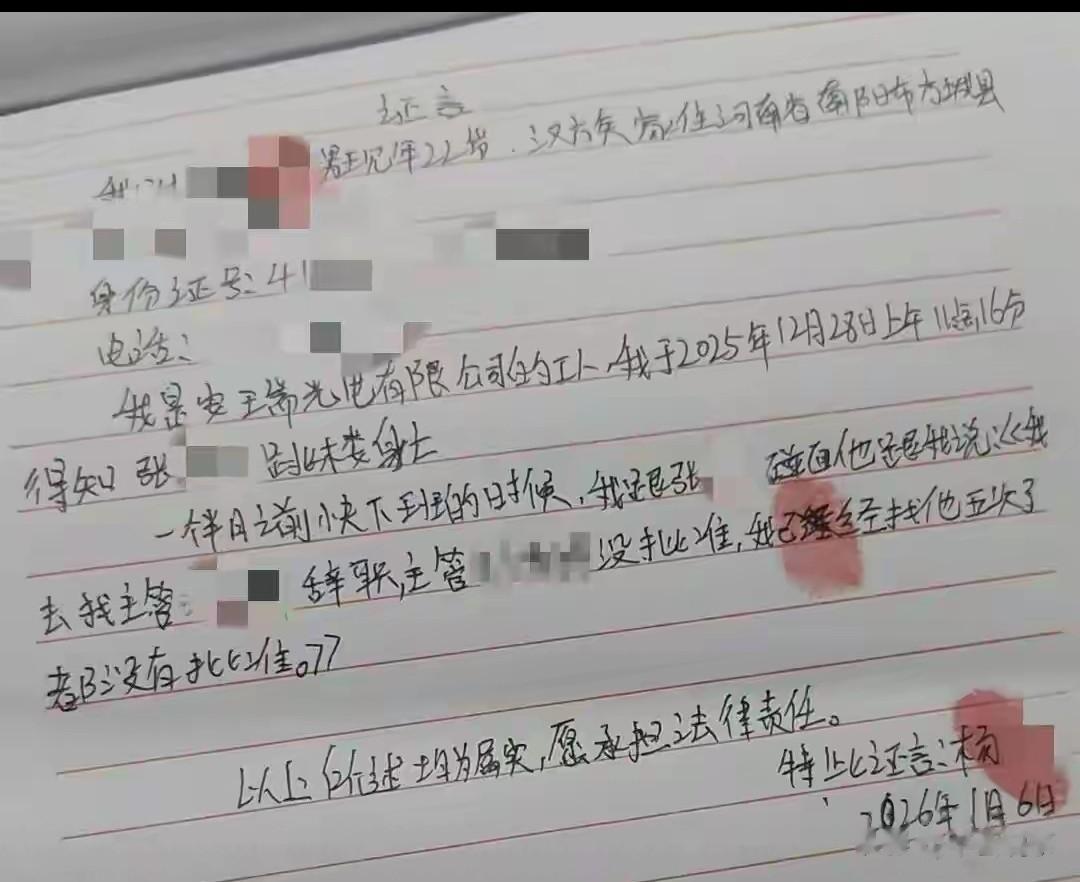 证言
男现年22岁.汉族家住河南省南阳市方城县
身份证号:41
电话:
我是安 光电有限公司的工人,我于2025年12月28日上午11点16分
得知张 跳楼
一个半月之前小夜下班的时候,我跟张 碰面他跟我说:《我
去找主管 辞职,主管 没批准,我已经找他五次了
都没有批准。》
以上 述均为属实,愿承担法律责任。
特此证言:杨
2026年1月6日